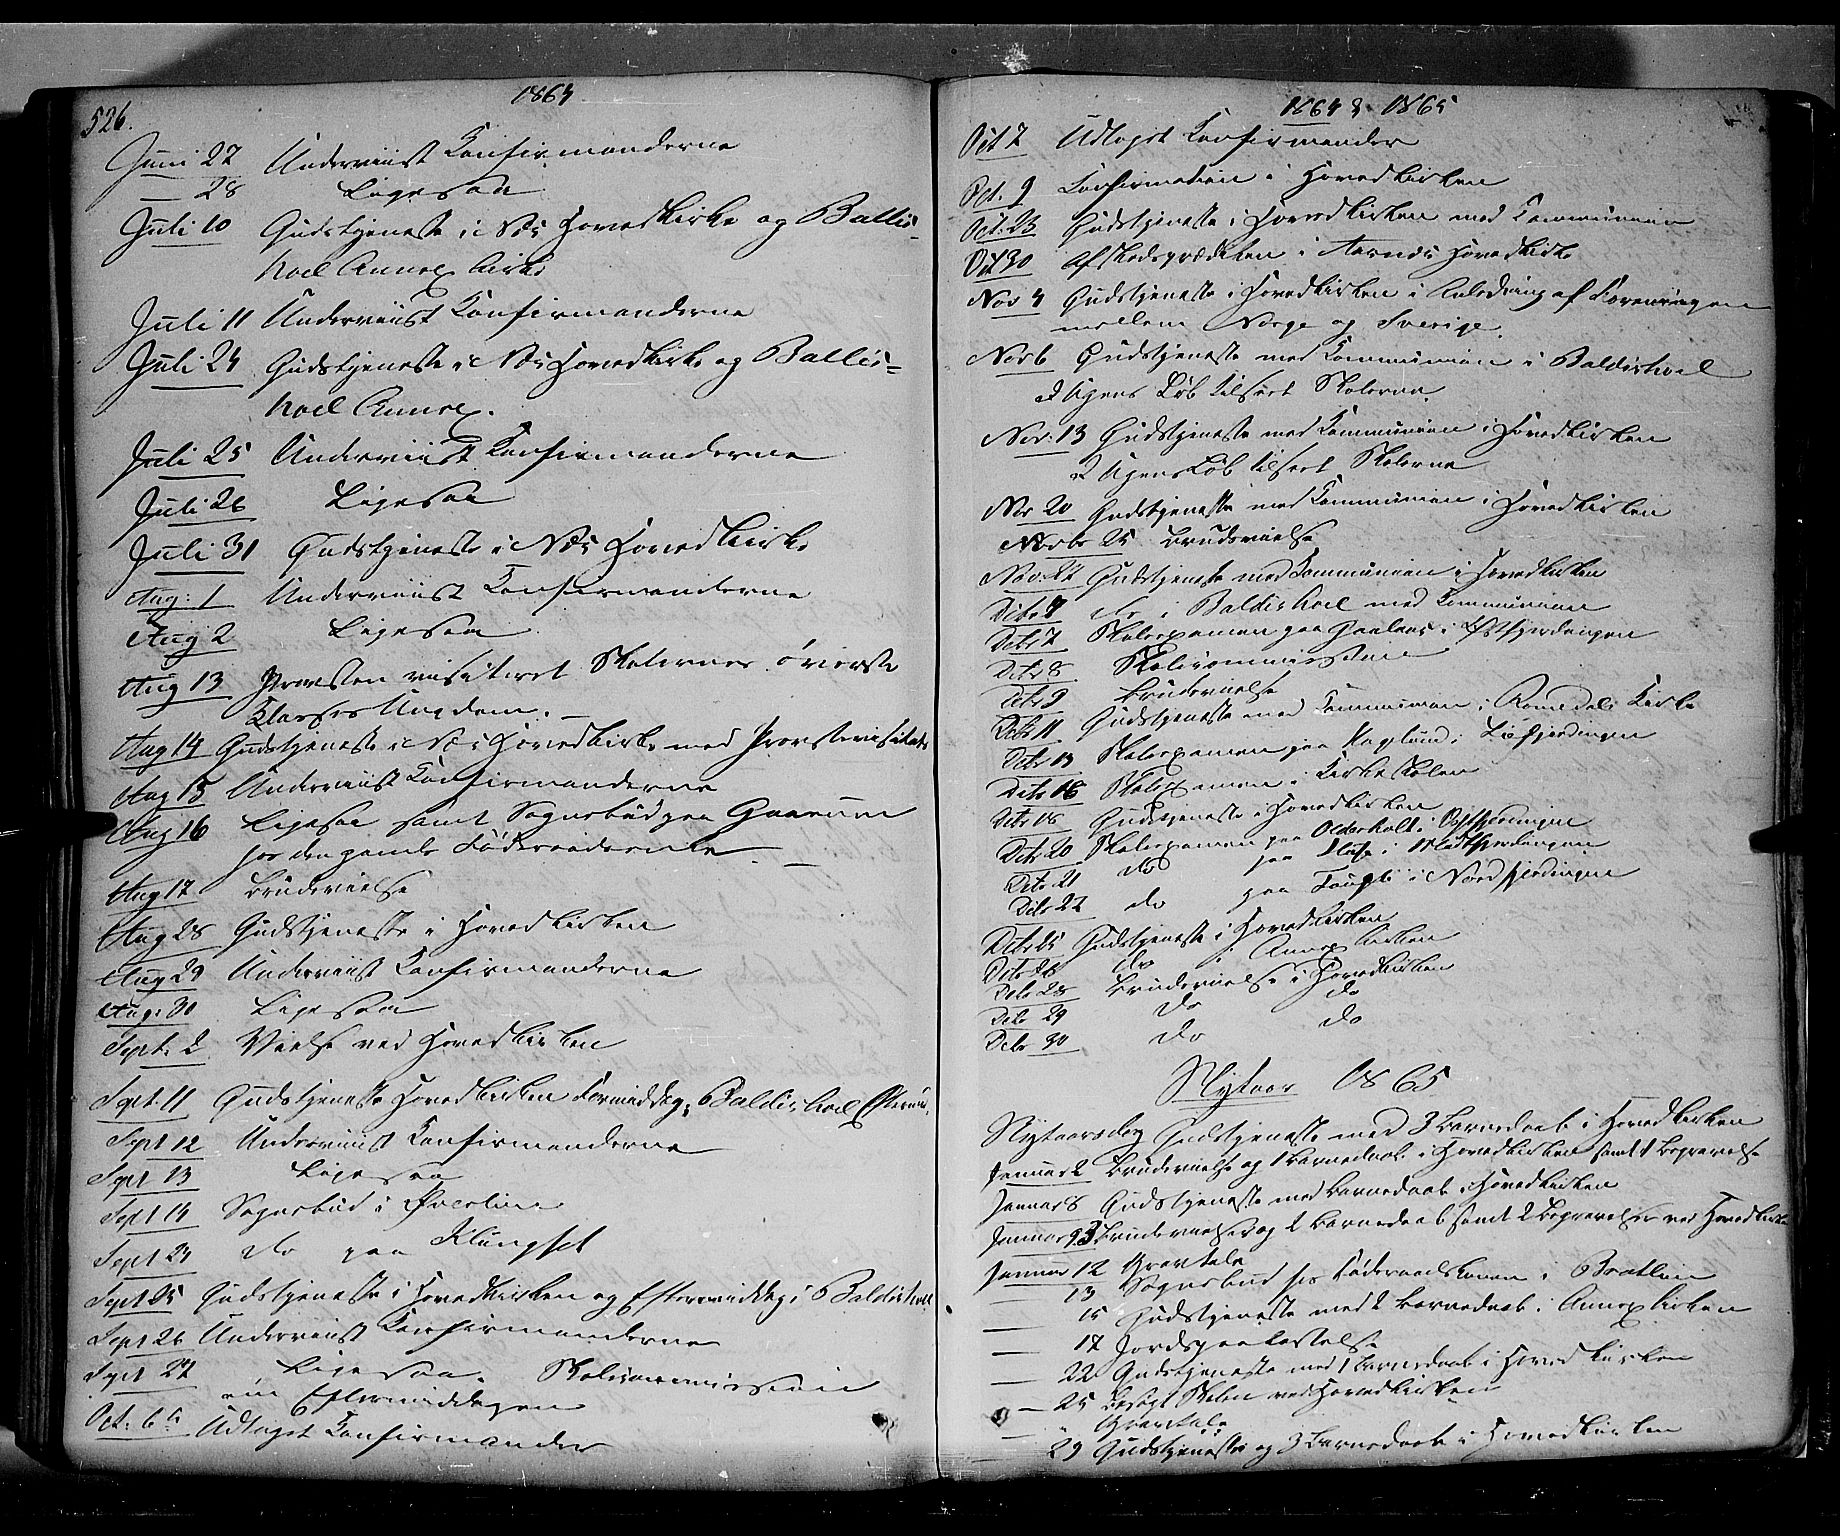 526.
1864
Juni 27 Underviist Konfirmanderne
— 28 Ligesaa
Juli 10 Gudstjeneste i Næs Hovedkirke og Ballis-
hoel Annex Kirke
Juli 11 Underviist Konfirmanderne
Juli 24 Gudstjeneste i Næs Hovedkirke og Ballis-
hoel Annex.
Juli 25 Underviist Konfirmanderne
Juli 26 Ligesaa
Juli 31 Gudstjeneste i Næs Hovedkirke
Aug: 1 Underviist Konfirmanderne
Aug 2 Ligesaa
Aug 13 Provsten visiteret Skolernes øverste
Klasses Ungdom. —
Aug 14 Gudstjeneste i Næs Hovedkirke med Provstevisitats
Aug 15 Underviist Konfirmanderne
Aug 16 Ligesaa samt Sognebud paa Gaarum
hos den gamle Føderaadsenke —
Aug 17 Brudevielse
Aug 28 Gudstjeneste i Hovedkirken
Aug 29 Underviist Konfirmanderne
Aug: 30 Ligesaa
Sept: 2 Vielse ved Hovedkirken
Sept. 11 Gudstjeneste Hovedkirken Formiddag, Baldishoel Efterm.
Sept 12 Underviist Konfirmanderne
Sept 13 Ligesaa
Sept 14 Sognebud i
Sept 24 do paa Klungset
Sept 25 Gudstjeneste i Hovedkirken og Eftermiddag i Baldishoel
Sept 26 Underviist Konfirmanderne
Sept 27 Ligesaa. Skolecommission
om Eftermiddagen
Oct: 6 Udtaget Konfirmander
1864 & 1865
Oct 7 Udtaget Konfirmander
Oct. 9 Confirmation i Hovedkirken
Oct: 23 Gudstjeneste i Hovedkirken med Communion
Oct 30 Afskedsprædiken i Hovedkirke
Nov 4 Gudstjeneste i Hovedkirken i Anledning af Foreningen
mellem Norge og Sverige.
Nov 6 Gudstjeneste med Communion i Baldishoel
I Ugens Løb tilseet Skolerne
Nov. 13 Gudstjeneste med Communion i Hovedkirken
I Ugens Løb tilseet Skolerne
Nov 20 Gudstjeneste med Communion i Hovedkirken
Novbr 25 Brudevielse
Nov: 27 Gudstjeneste med Communion i Hovedkirken
Decbr 4 do i Baldishoel med Communion
Decbr 7 Skoleexamen paa i Østfjerdingen
Decbr 8 Skolecommission
Decbr 9 Brudevielse
Decbr 11 Gudstjeneste med Communion i Romedals Kirke
Decbr 13 Skoleexamen paa i
Decbr 16 Skoleexamen i Kirkeskolen
Decbr 18 Gudstjeneste i Hovedkirken
Decbr 20 Skoleexamen paa i
Decbr 21 do paa i
Decbr 22 do paa i Nordfjerdingen
Decbr 25 Gudstjeneste i Hovedkirken
Decbr 26 do i Annexkirken
Decbr 28 Brudevielse i Hovedkirken
Decbr 29 do do
Decbr 30 do do
Nytaar 1865
Nytaarsdag Gudstjeneste med 3 Barnedaab i Hovedkirken
Januar 2 Brudevielse og 1 Barnedaab i Hovedkirken samt 1 Begravelse
Januar 8 Gudstjeneste med Barnedaab i Hovedkirken
Januar 9 3 Brudevielser og 2 Barnedaab samt 2 Begravelser ved Hovedkirken
Januar 12 Gravtale
— 13 Sognebud hos Føderaadskonen i Bratlien
— 15 Gudstjeneste med 2 Barnedaab i Annexkirken
— 17 Jordspaakastelse
— 22 Gudstjeneste med 1 Barnedaab i Hovedkirken
— 25 Besøgt Skolen ved Hovedkirken
— " Gravtale
— 29 Gudstjeneste og 3 Barnedaab i Hovedkirken